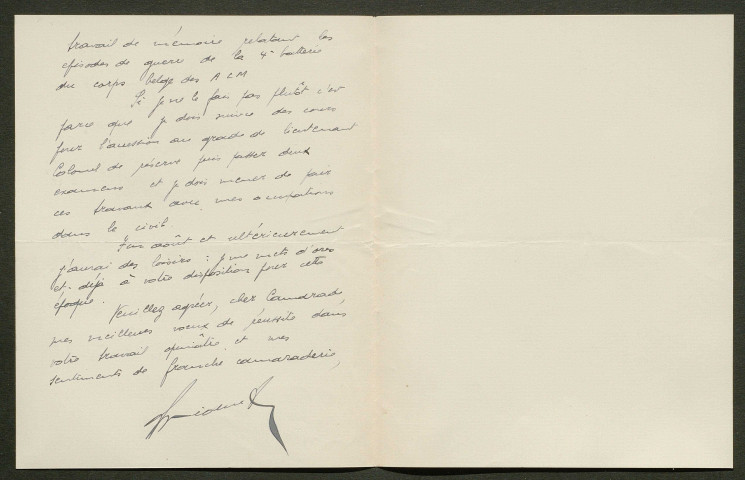 travail de mémoire relatant les
épisodes de guerre de la 4e batterie
du corps belge des A C M
Si je ne le fais pas plutôt c'est
parce que je dois suivre des cours
pour l'accession au grade de lieutenant
Colonel de réserve puis passer deux
examens et je dois mener de pair
ces travaux avec mes occupations
dans le civil.
août et ultérieurement
j'aurai des loisirs : je me mets d'ores
et déjà à votre disposition pour cette
époque.
Veuillez agréer, cher Camarade
mes meilleurs voeux de réussite dans
votre travail opiniâtre et mes
sentiments de franche camaraderie,